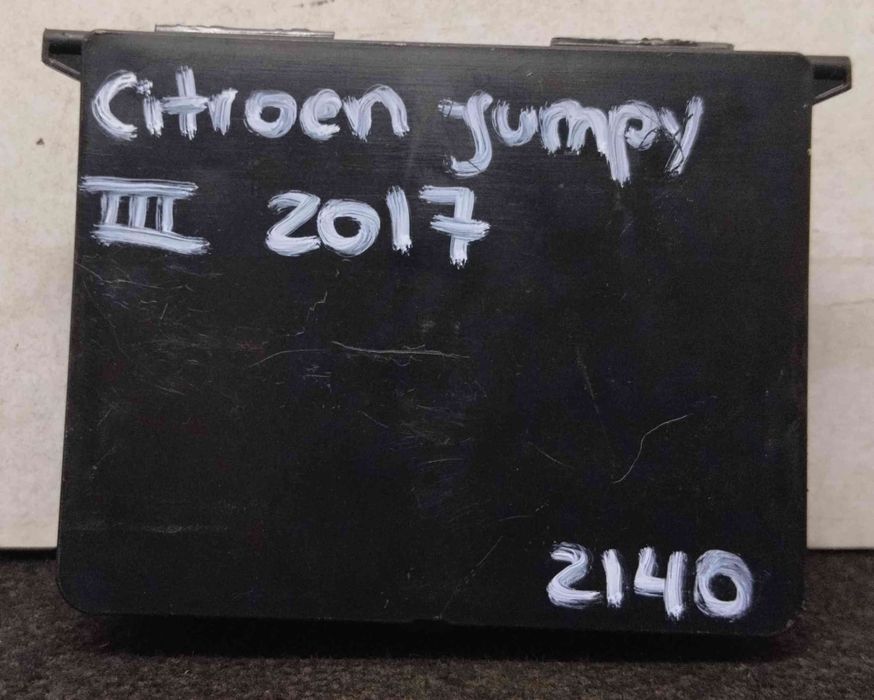 Citroen Jumpy
III 2017
2140